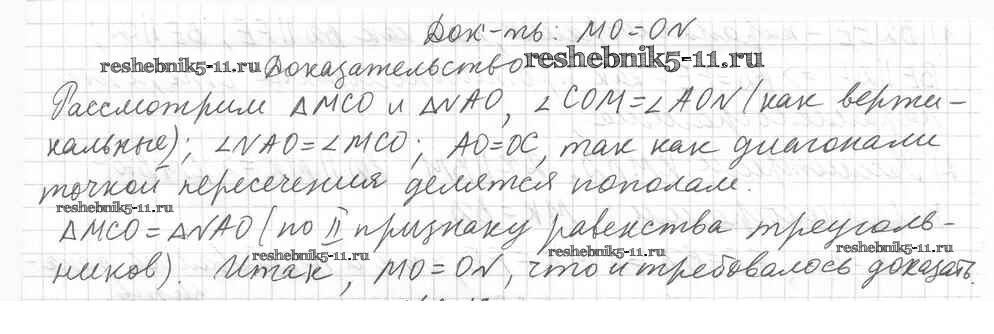 Док-ть: MO=ON
reshebnik5-11.ru Доказательство reshebnik5-11.ru
Рассмотрим ΔMCO и ΔNAO, ∠COM=∠AON (как верти-
кальные); ∠NAO=∠MCO; AO=OC, так как диагонали
точкой пересечения делятся пополам.
reshebnik5-11.ru
ΔMCO=ΔNAO (по II признаку равенства треуголь-
reshebnik5-11.ru reshebnik5-11.ru reshebnik5-11.ru
ников). Итак, MO=ON, что и требовалось доказать.